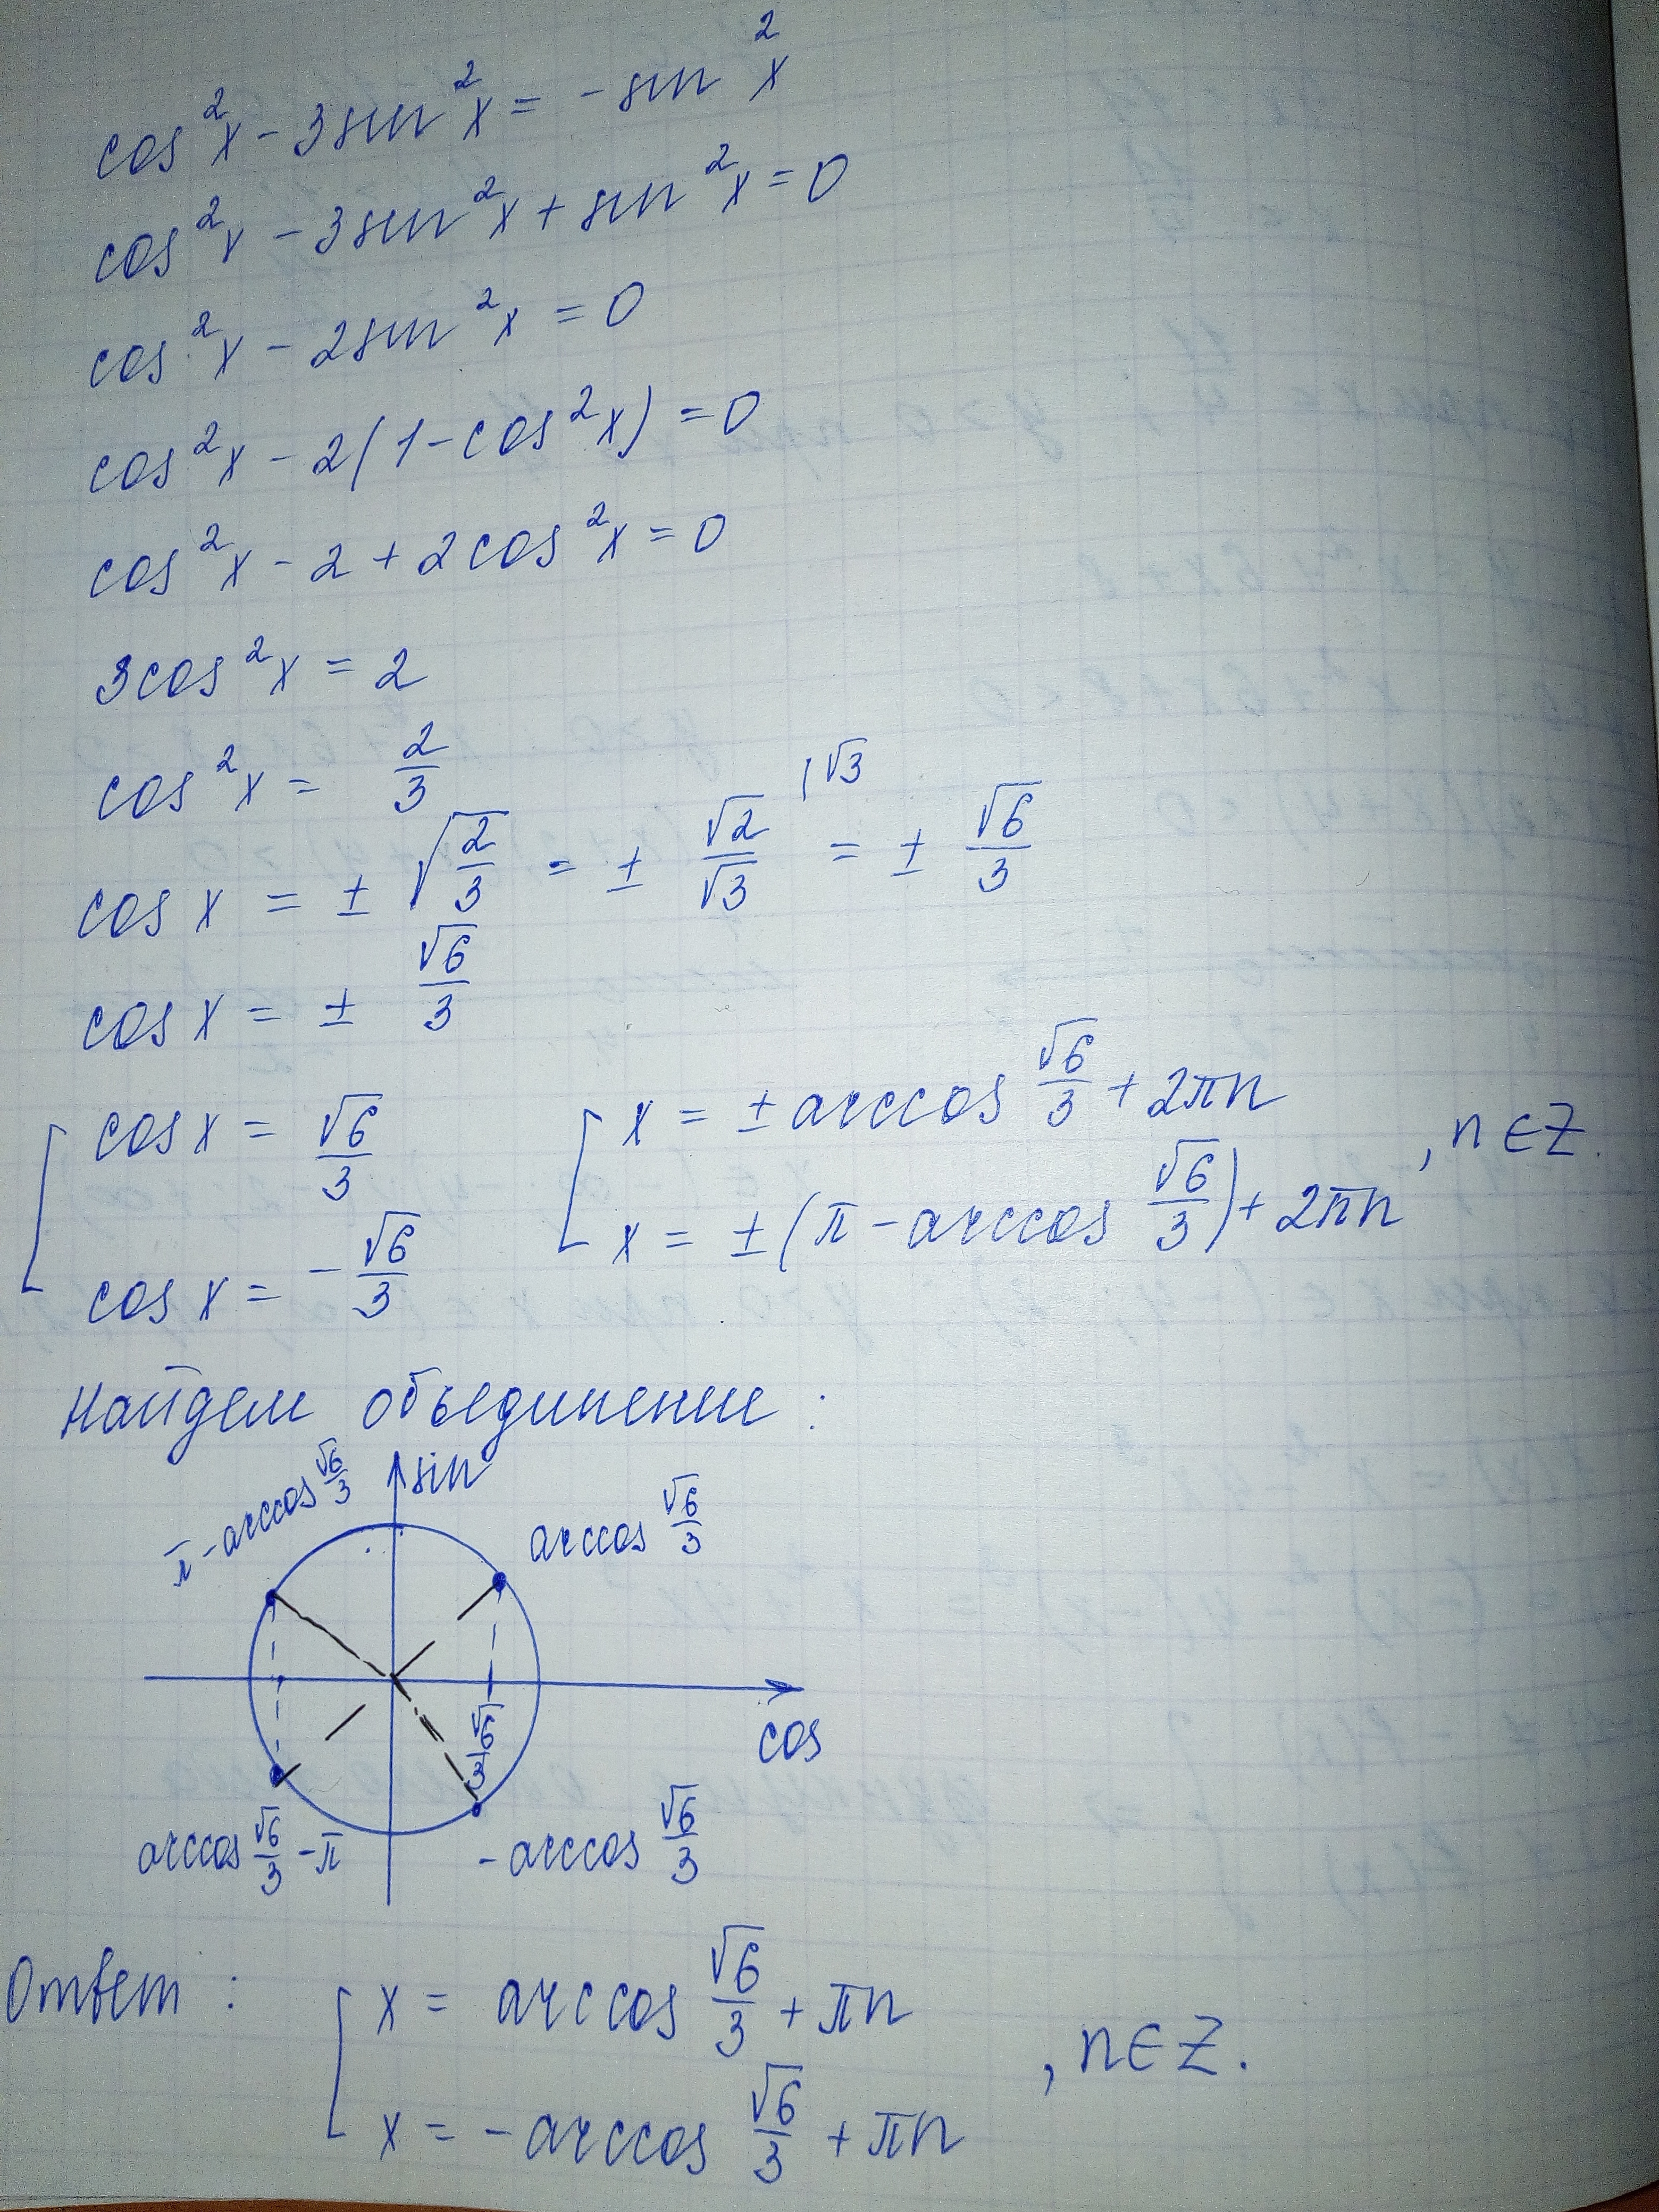 cos²x - 3sin²x = - sin²x
cos²x - 3sin²x + sin²x = 0
cos²x - 2sin²x = 0
cos²x - 2(1 - cos²x) = 0
cos²x - 2 + 2cos²x = 0
3cos²x = 2
cos²x = 2/3
cos x = ± √(2/3) = ± √2/√3 (√3 = ± √6/3
cos x = ± √6/3
[ cos x = √6/3 [ x = ± arccos √6/3 + 2πn
cos x = - √6/3 x = ± (π - arccos √6/3) + 2πn , n ∈ Z.
Найдем объединение :
sin
π - arccos √6/3
arccos √6/3
√6/3
cos
arccos √6/3 - π
- arccos √6/3
Ответ : [ x = arccos √6/3 + πn
x = - arccos √6/3 + πn , n ∈ Z.